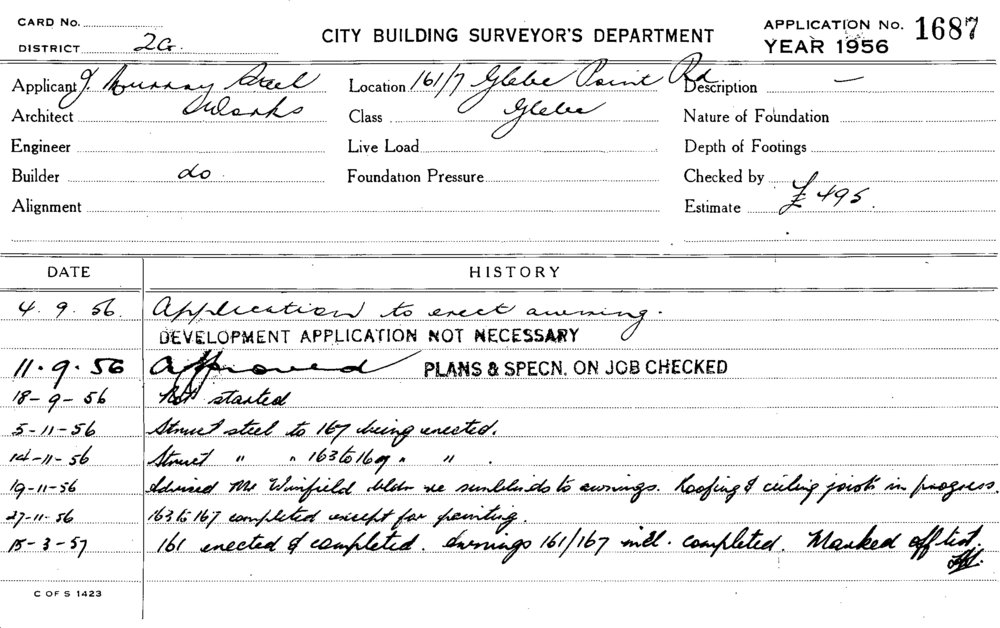 CARD No.
DISTRICT 2G.
CITY BUILDING SURVEYOR'S DEPARTMENT
APPLICATION No. 1687
YEAR 1956
Applicant J. Murray
Location 161/7 Glebe Point Rd
Description —
Architect
Class Glebe
Nature of Foundation
Engineer
Live Load
Depth of Footings
Builder do
Foundation Pressure
Checked by
Alignment
Estimate £495.
DATE HISTORY
4. 9. 56. Application to erect awning.
DEVELOPMENT APPLICATION NOT NECESSARY
11. 9. 56 Approved PLANS & SPECN. ON JOB CHECKED
18-9-56 Not started
5-11-56 Struct steel to 167 being erected.
14-11-56 Struct " " 163 to 16 " " .
19-11-56 Advised Mr Winfield bldr re sunblinds to awnings. Roofing & ceiling joists in progress.
27-11-56 163 to 167 completed except for painting.
15-3-57 161 erected & completed. Awnings 161/167 incl. completed. Marked off list.
C OF S 1423